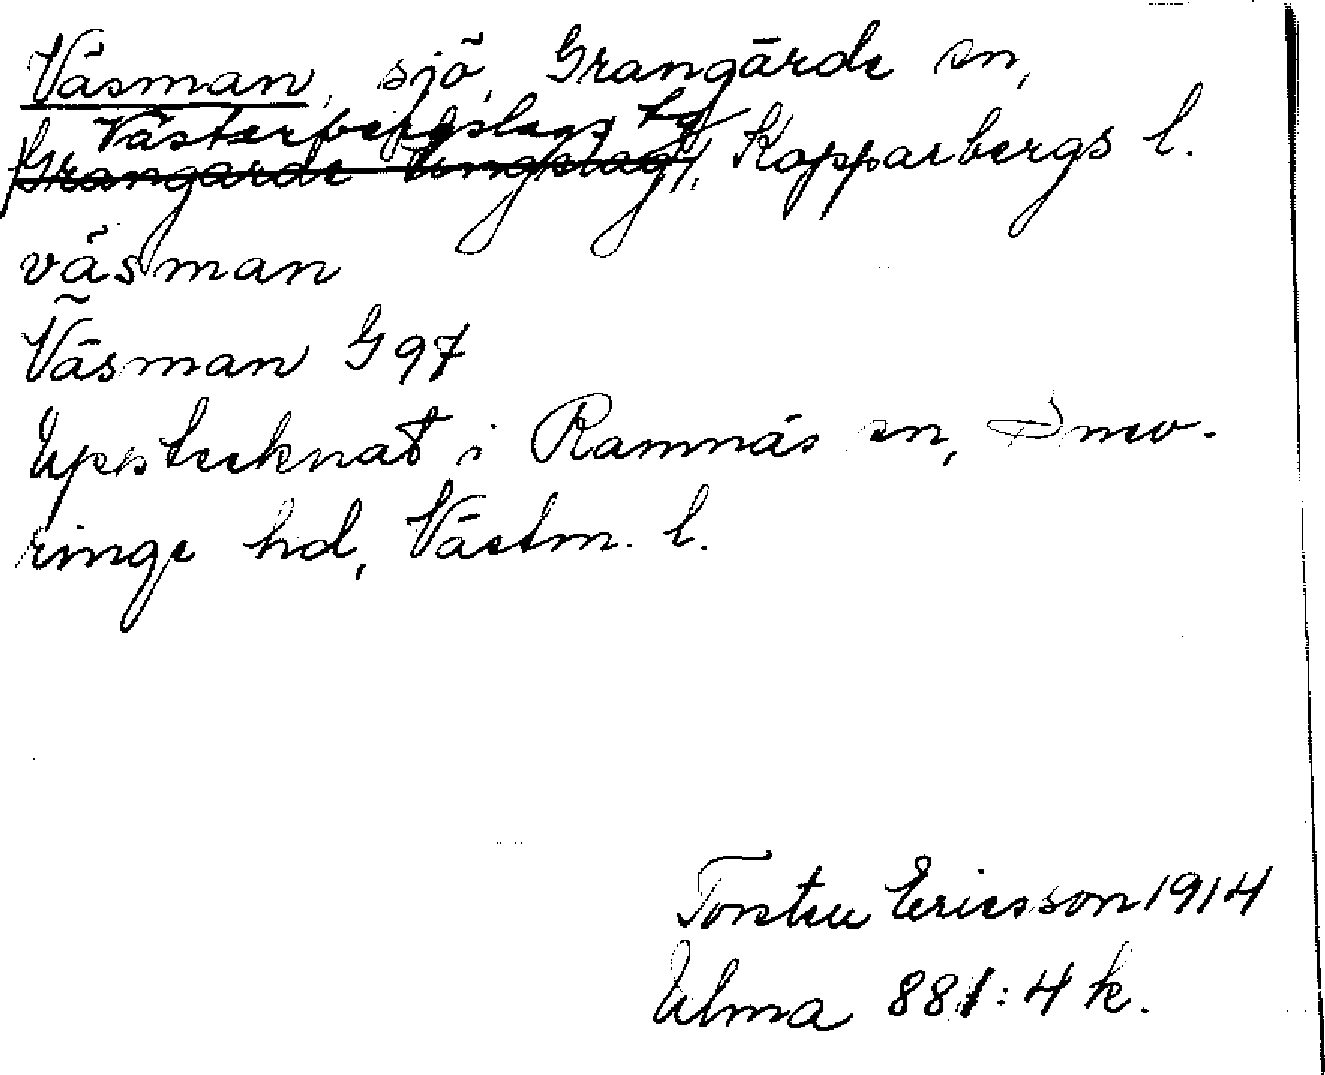 Väsman, sjö, Grangärde sn,
Västerbergslags tg
Grangärde tingslag, Kopparbergs l.
väsman
Väsman G 97
Upptecknat i Ramnäs sn, Snev-
ringe hd, Västm. l.
Torsten Ericsson 1914
Ulma 881:4 k.